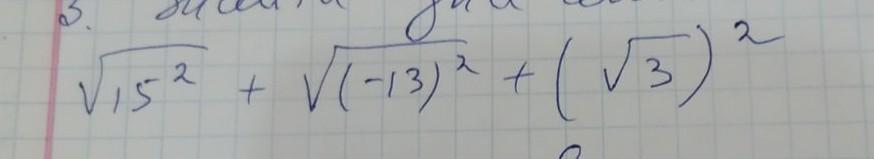 3.
√15² + √(-13)² + (√3)²